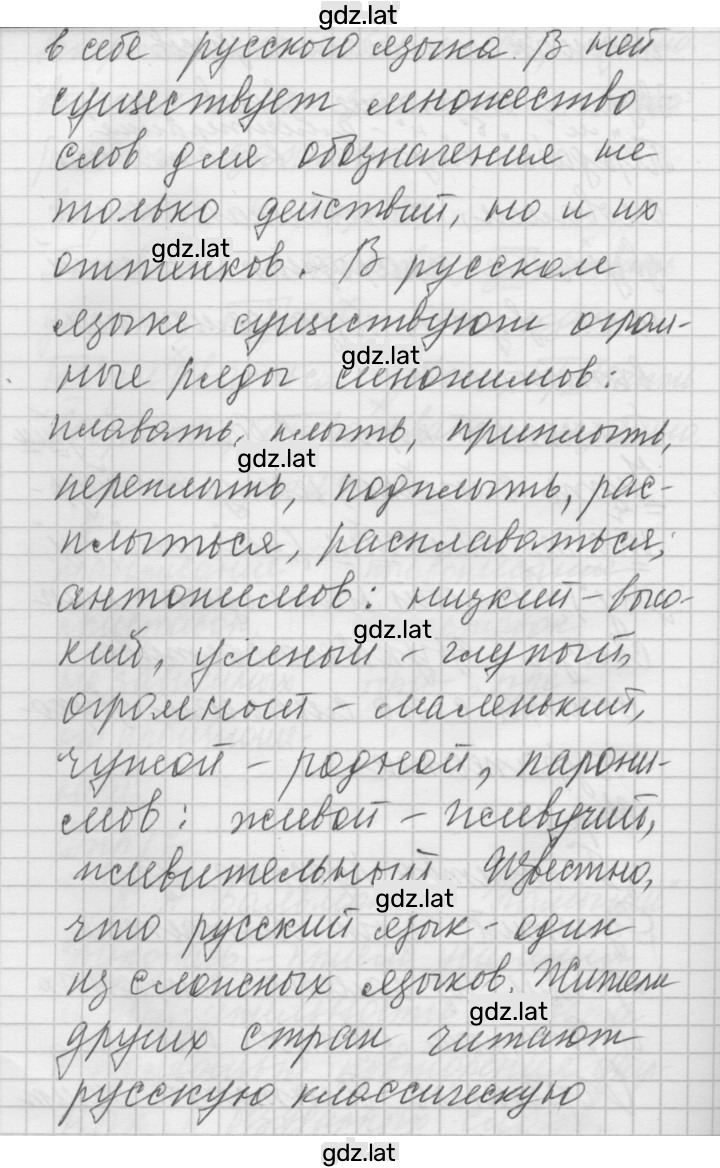 gdz.lat
в себе русского языка. В ней
существует множество
слов для обозначения не
только действий, но и их
gdz.lat
оттенков. В русском
языке существуют огром-
gdz.lat
ные ряды синонимов:
плавать, плыть, приплыть,
gdz.lat
переплыть, подплыть, рас-
плыться, расплаваться;
антонимов: низкий – высо-
gdz.lat
кий, умный – глупый,
огромный – маленький,
чужой – родной, парони-
мов: живой – живучий,
живительный. Известно,
gdz.lat
что русский язык – один
из сложных языков. Жители
gdz.lat
других стран читают
русскую классическую
gdz.lat